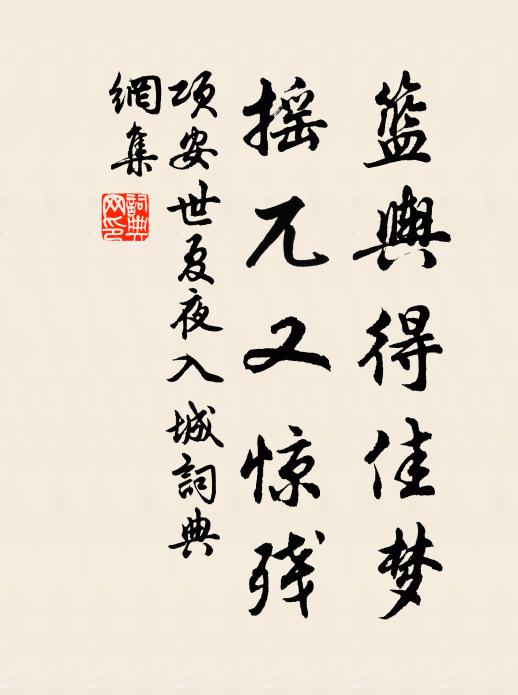 篮舆得佳梦
摇兀又惊残
项安世夏夜入城詞典
網集
詞典
网印